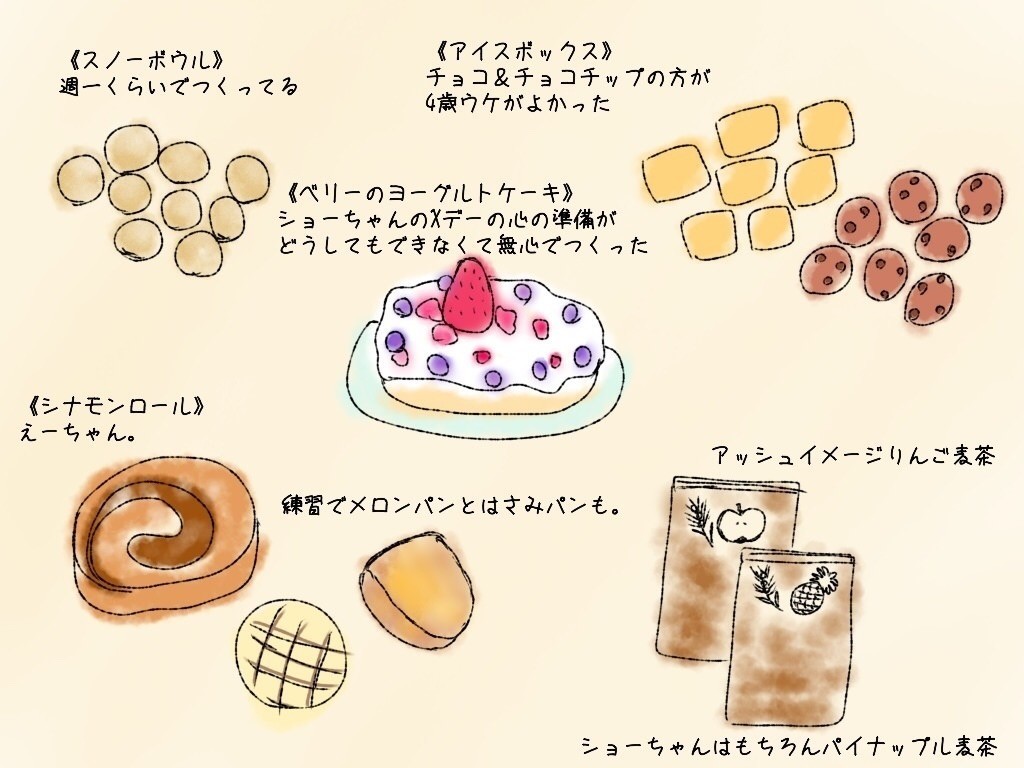 《スノーボウル》
週一くらいでつくってる
《アイスボックス》
チョコ&チョコチップの方が
4歳ウケがよかった
《ベリーのヨーグルトケーキ》
ショーちゃんのXデーの心の準備が
どうしてもできなくて無心でつくった
《シナモンロール》
えーちゃん。
練習でメロンパンとはさみパンも。
アッシュイメージりんご麦茶
ショーちゃんはもちろんパイナップル麦茶